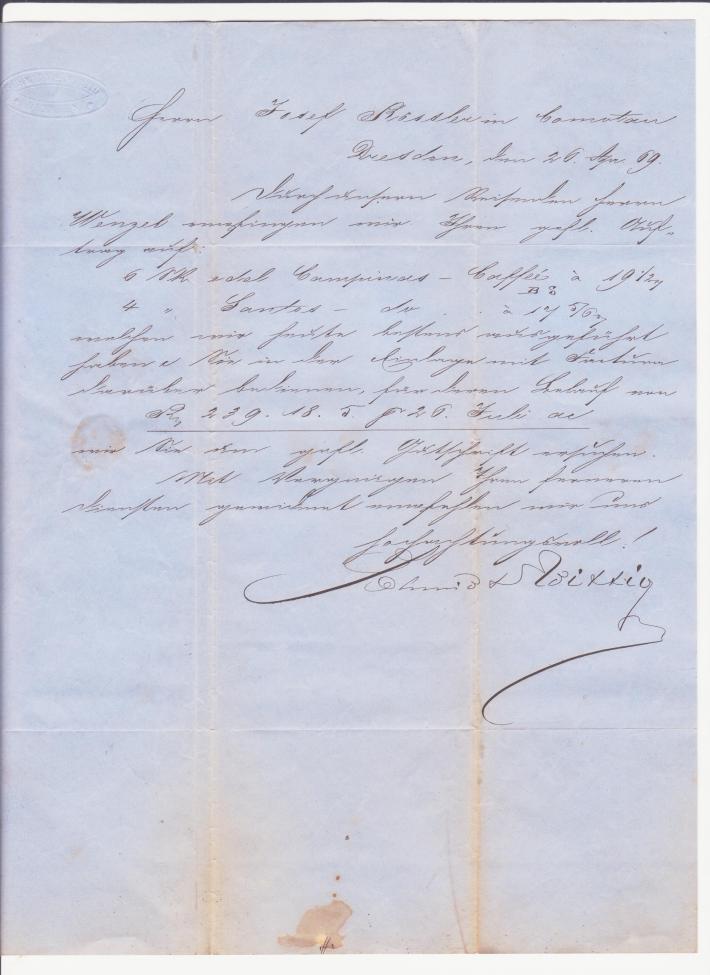 Herrn Josef Rössler in Comotau
Dresden, den 26. Apr. 69.
Durch unsern Reisenden Herrn
Wenzel empfingen wir Ihren gefl. Auf-
trag auf:
6 Sk edel Campinas - Caffée à 19 1/2
4 " Santos - do . . à 17 5/6
welchen wir heute bestens ausgeführt
haben & Sie in der Einlage mit Factura
darüber bedienen, für deren Belauf von
239. 18. 5. p 26. Juli ac
wir Sie um gefl. Gutschrift ersuchen.
Mit Vergnügen Ihren ferneren
Diensten gewidmet empfehlen wir uns
hochachtungsvoll!